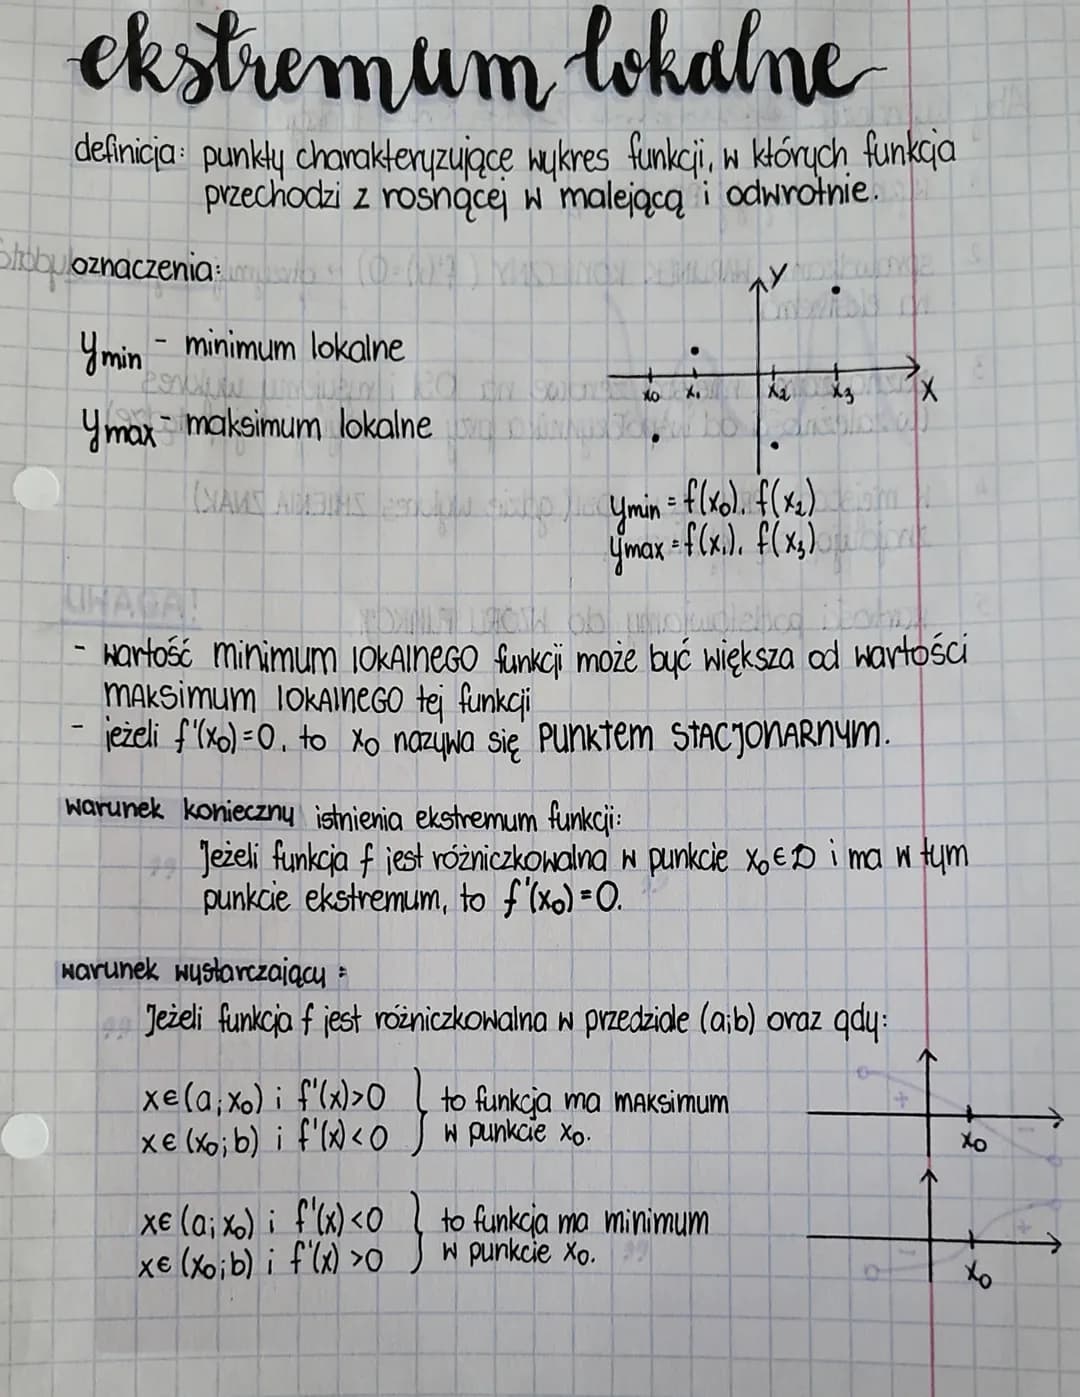 ekstremum lokalne
definicja: punkty charakteryzujące wykres funkcji, w których funkcja
przechodzi z rosnącej w malejącą i odwrotnie.
oznaczenia:
Y
ymin - minimum lokalne
x0 x1 x2 x3 X
ymax - maksimum lokalne
ymin = f(x0), f(x2)
ymax = f(x1), f(x3)
UWAGA!
- wartość minimum lOKAlneGO funkcji może być większa od wartości
mAKsimum lOKAlneGO tej funkcji
- jeżeli f'(x0)=0, to x0 nazywa się PUNKTEM STACJONARNYM.
warunek konieczny istnienia ekstremum funkcji:
Jeżeli funkcja f jest różniczkowalna w punkcie x0∈D i ma w tym
punkcie ekstremum, to f'(x0)=0.
warunek wystarczający:
Jeżeli funkcja f jest różniczkowalna w przedziale (a;b) oraz gdy:
x∈(a;x0) i f'(x)>0 } to funkcja ma mAKsimum
x∈(x0;b) i f'(x)<0 w punkcie x0.
+ -
x0
x∈(a;x0) i f'(x)<0 } to funkcja ma minimum
x∈(x0;b) i f'(x)>0 w punkcie x0.
- +
x0